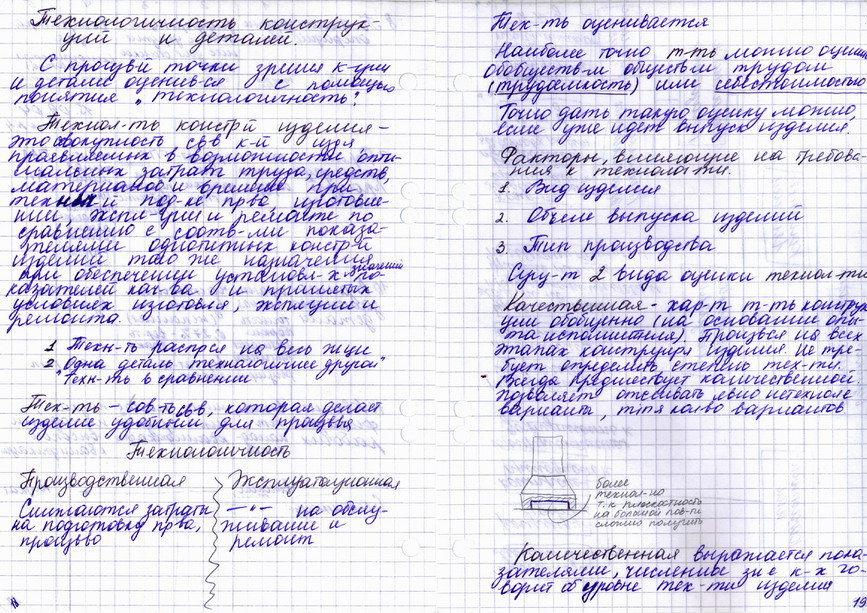 Технологичность конструк-
ций и деталей.
С произв-й точки зрения к-ции
и детали оценив-ся с помощью
понятия "технологичность".
Технол-ть констр-й изделия -
это совокупность св-в к-й изд-я
проявляемых в возможности опти-
мальных затрат труда, средств,
материалов и времени при
технич-й под-ке пр-ва, изготовле-
нии, экспл-ции и ремонте по
сравнению с соотв-ми показа-
телями однотипных констр-й
изделий того же назначения
при обеспечении установл-х значений по-
казателей кач-ва и принятых
условиях изготовл-я, экспл-ции и
ремонта.
1 Техн-ть распр-ся на весь жци
2 "Одна деталь технологичнее другой"
Техн-ть в сравнении
Тех-ть - сов-ть св-в, которая делает
изделие удобным для произв-ва
Технологичность
Производственная
Эксплуатационная
Снижаются затраты
на подготовку пр-ва,
произв-во
—"— на обслу-
живание и
ремонт
Тех-ть оценивается
Наиболее точно т-ть можно оцени
обобществ-м обществ-м трудом
(трудоемкость) или себестоимостью
Точно дать такую оценку можно,
если уже идет выпуск изделия.
Факторы, влияющие на требова-
ния к технол-ти.
1. Вид изделия
2. Объем выпуска изделий
3. Тип производства
Сущ-т 2 вида оценки технол-ти
Качественная - хар-т т-ть констру
ции обобщенно (на основании опы-
та исполнителя). Произв-ся на всех
этапах конструир-я изделия. Не тре-
бует определить степень тех-ти.
Всегда предшествует количественной
позволяет отсеивать явно нетехноло
варианты, кол-во вариантов
более
технол-но
т.к плоскостность
на большой пов-ти
сложно получить
Количественная выражается пока-
зателями, численные зн-е к-х го-
ворит об уровне тех-ти изделия
19